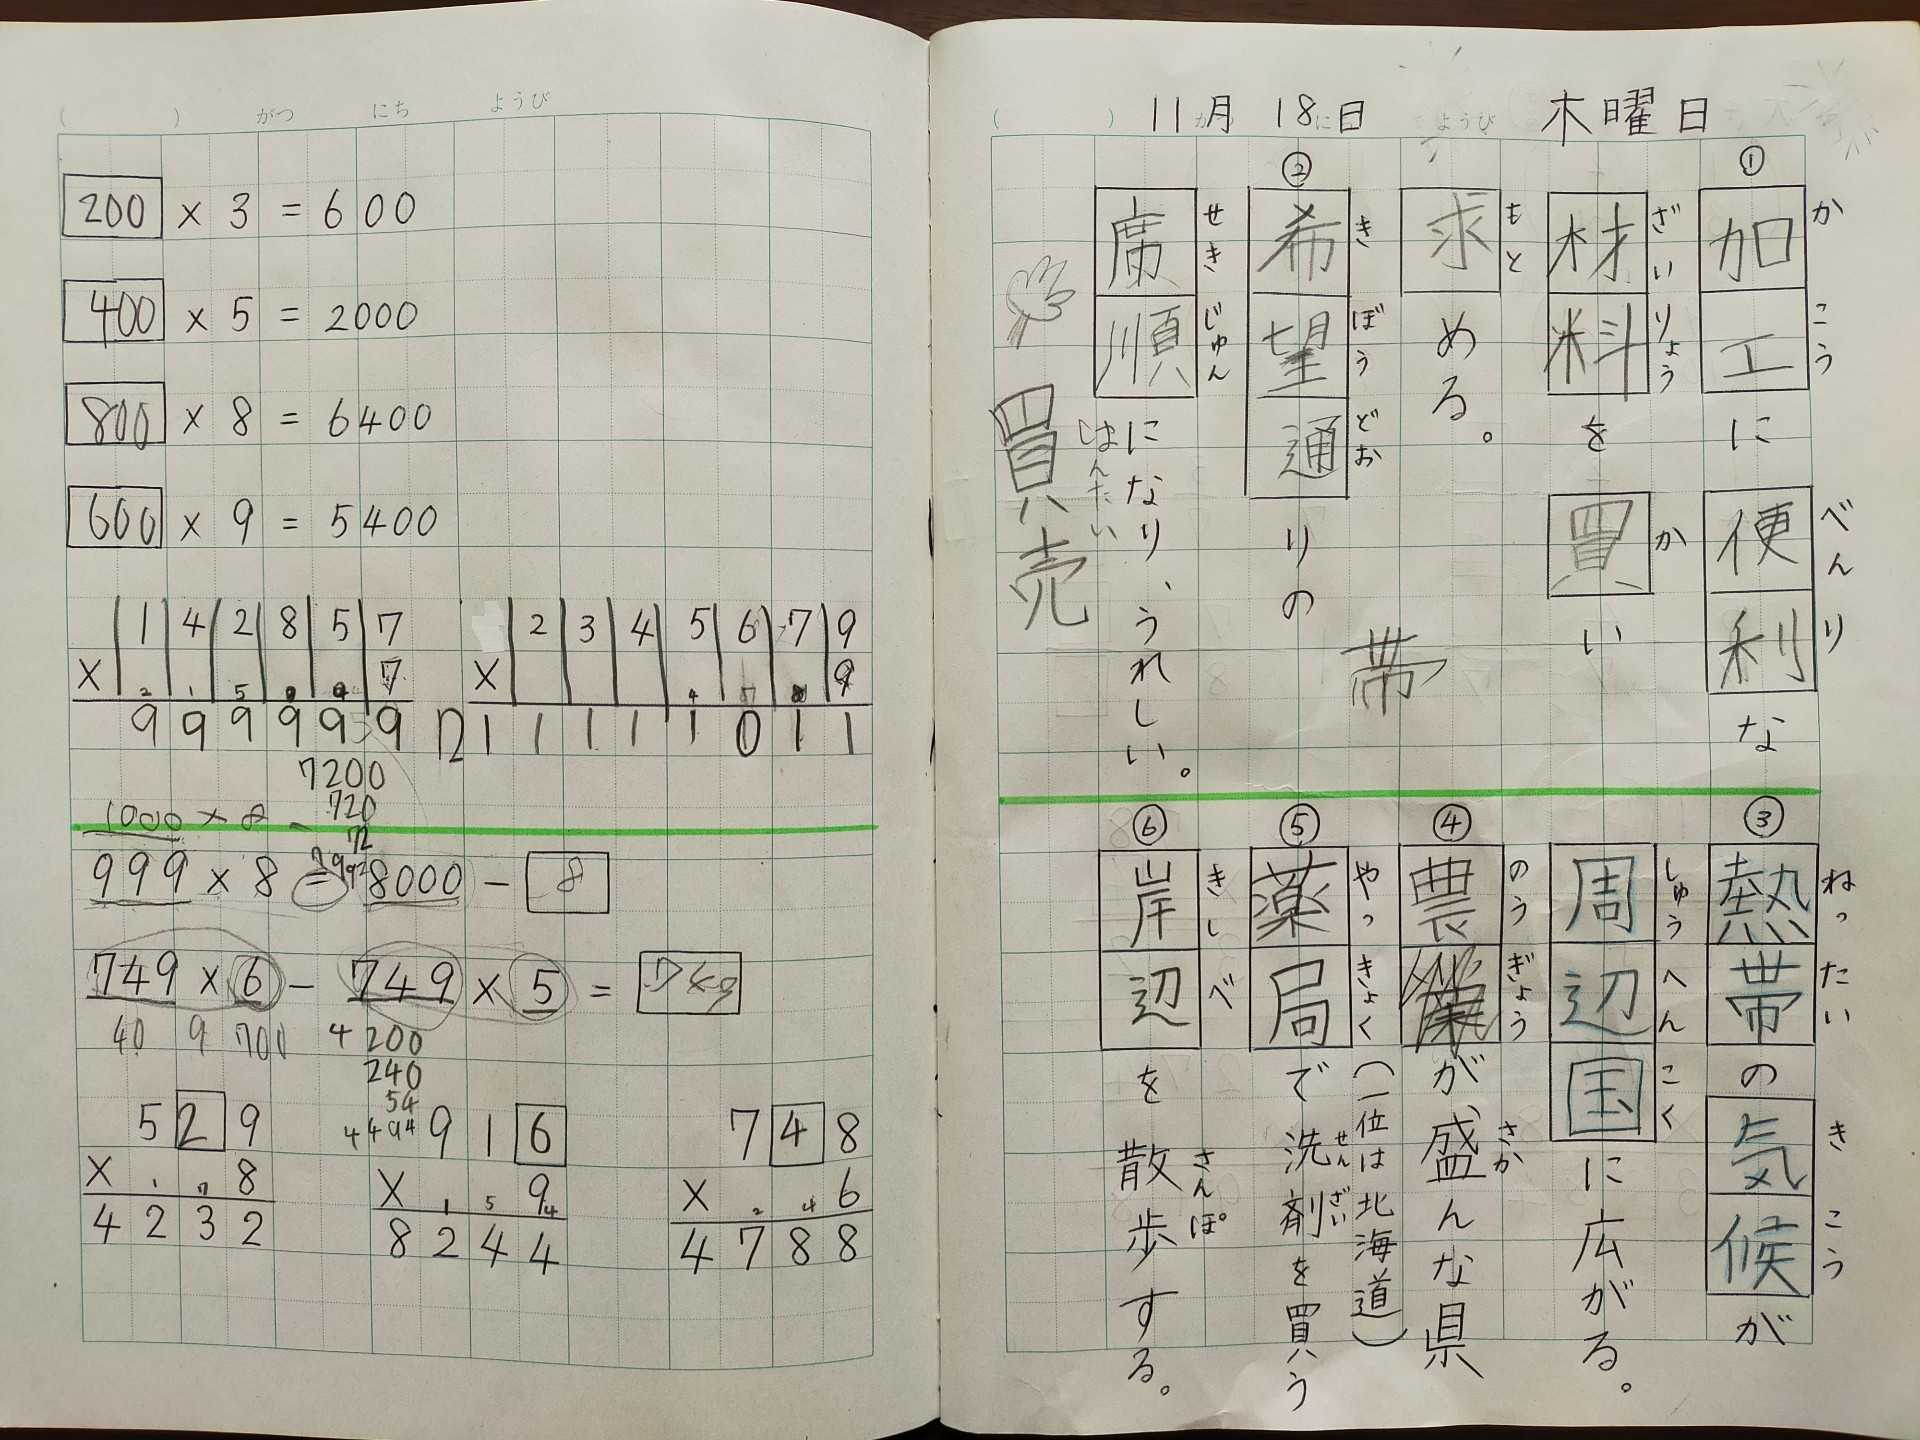 ( ) がつ にち ようび
200 × 3 = 600
400 × 5 = 2000
800 × 8 = 6400
600 × 9 = 5400
1 4 2 8 5 7
× 7
2 1 5
9 9 9 9 9 9
2 3 4 5 6 7 9
× 9
1 1 1 1 1 0 1 1
7200
720
72
1000 × 8
999 × 8 = 8000 − 8
7992
749 × 6 − 749 × 5 = 749
40 9 700
4200
240
54
4494
5 2 9
× 8
1 7
4 2 3 2
9 1 6
× 9
1 5 4
8 2 4 4
7 4 8
× 6
2 4
4 7 8 8
( ) 11月 18日 ようび 木曜日
①
加工に便利な
かこう べんり
材料を買い
ざいりょう か
求める。
もと
帯
②
希望通りの
きぼうどお
席順になり、うれしい。
せきじゅん
はんたい
買売
③
熱帯の気候が
ねったい きこう
周辺国に広がる。
しゅうへんこく
④
農業が盛んな県
のうぎょう さか
(一位は北海道)
⑤
薬局で洗剤を買う
やっきょく せんざい
⑥
岸辺を散歩する。
きしべ さんぽ